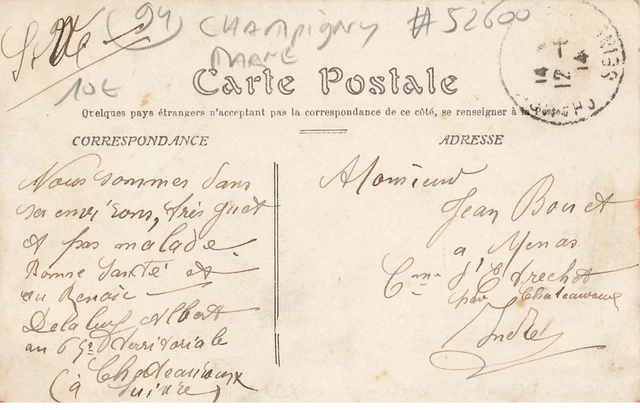 S. M (94) CHAMPIGNY #52600
MARNE
10€
Carte Postale
Quelques pays étrangers n'acceptant pas la correspondance de ce côté, se renseigner à la poste
14 12 14
SEINE
CORRESPONDANCE
ADRESSE
Nous sommes dans
environs, très
et pas malade.
Bonne Santé et
au Revoir
Albert
au 65e Territoriale
Chateauroux
(à Indre)
Monsieur
Jean Bouet
a
Cne d'
par Chateauroux
Indre